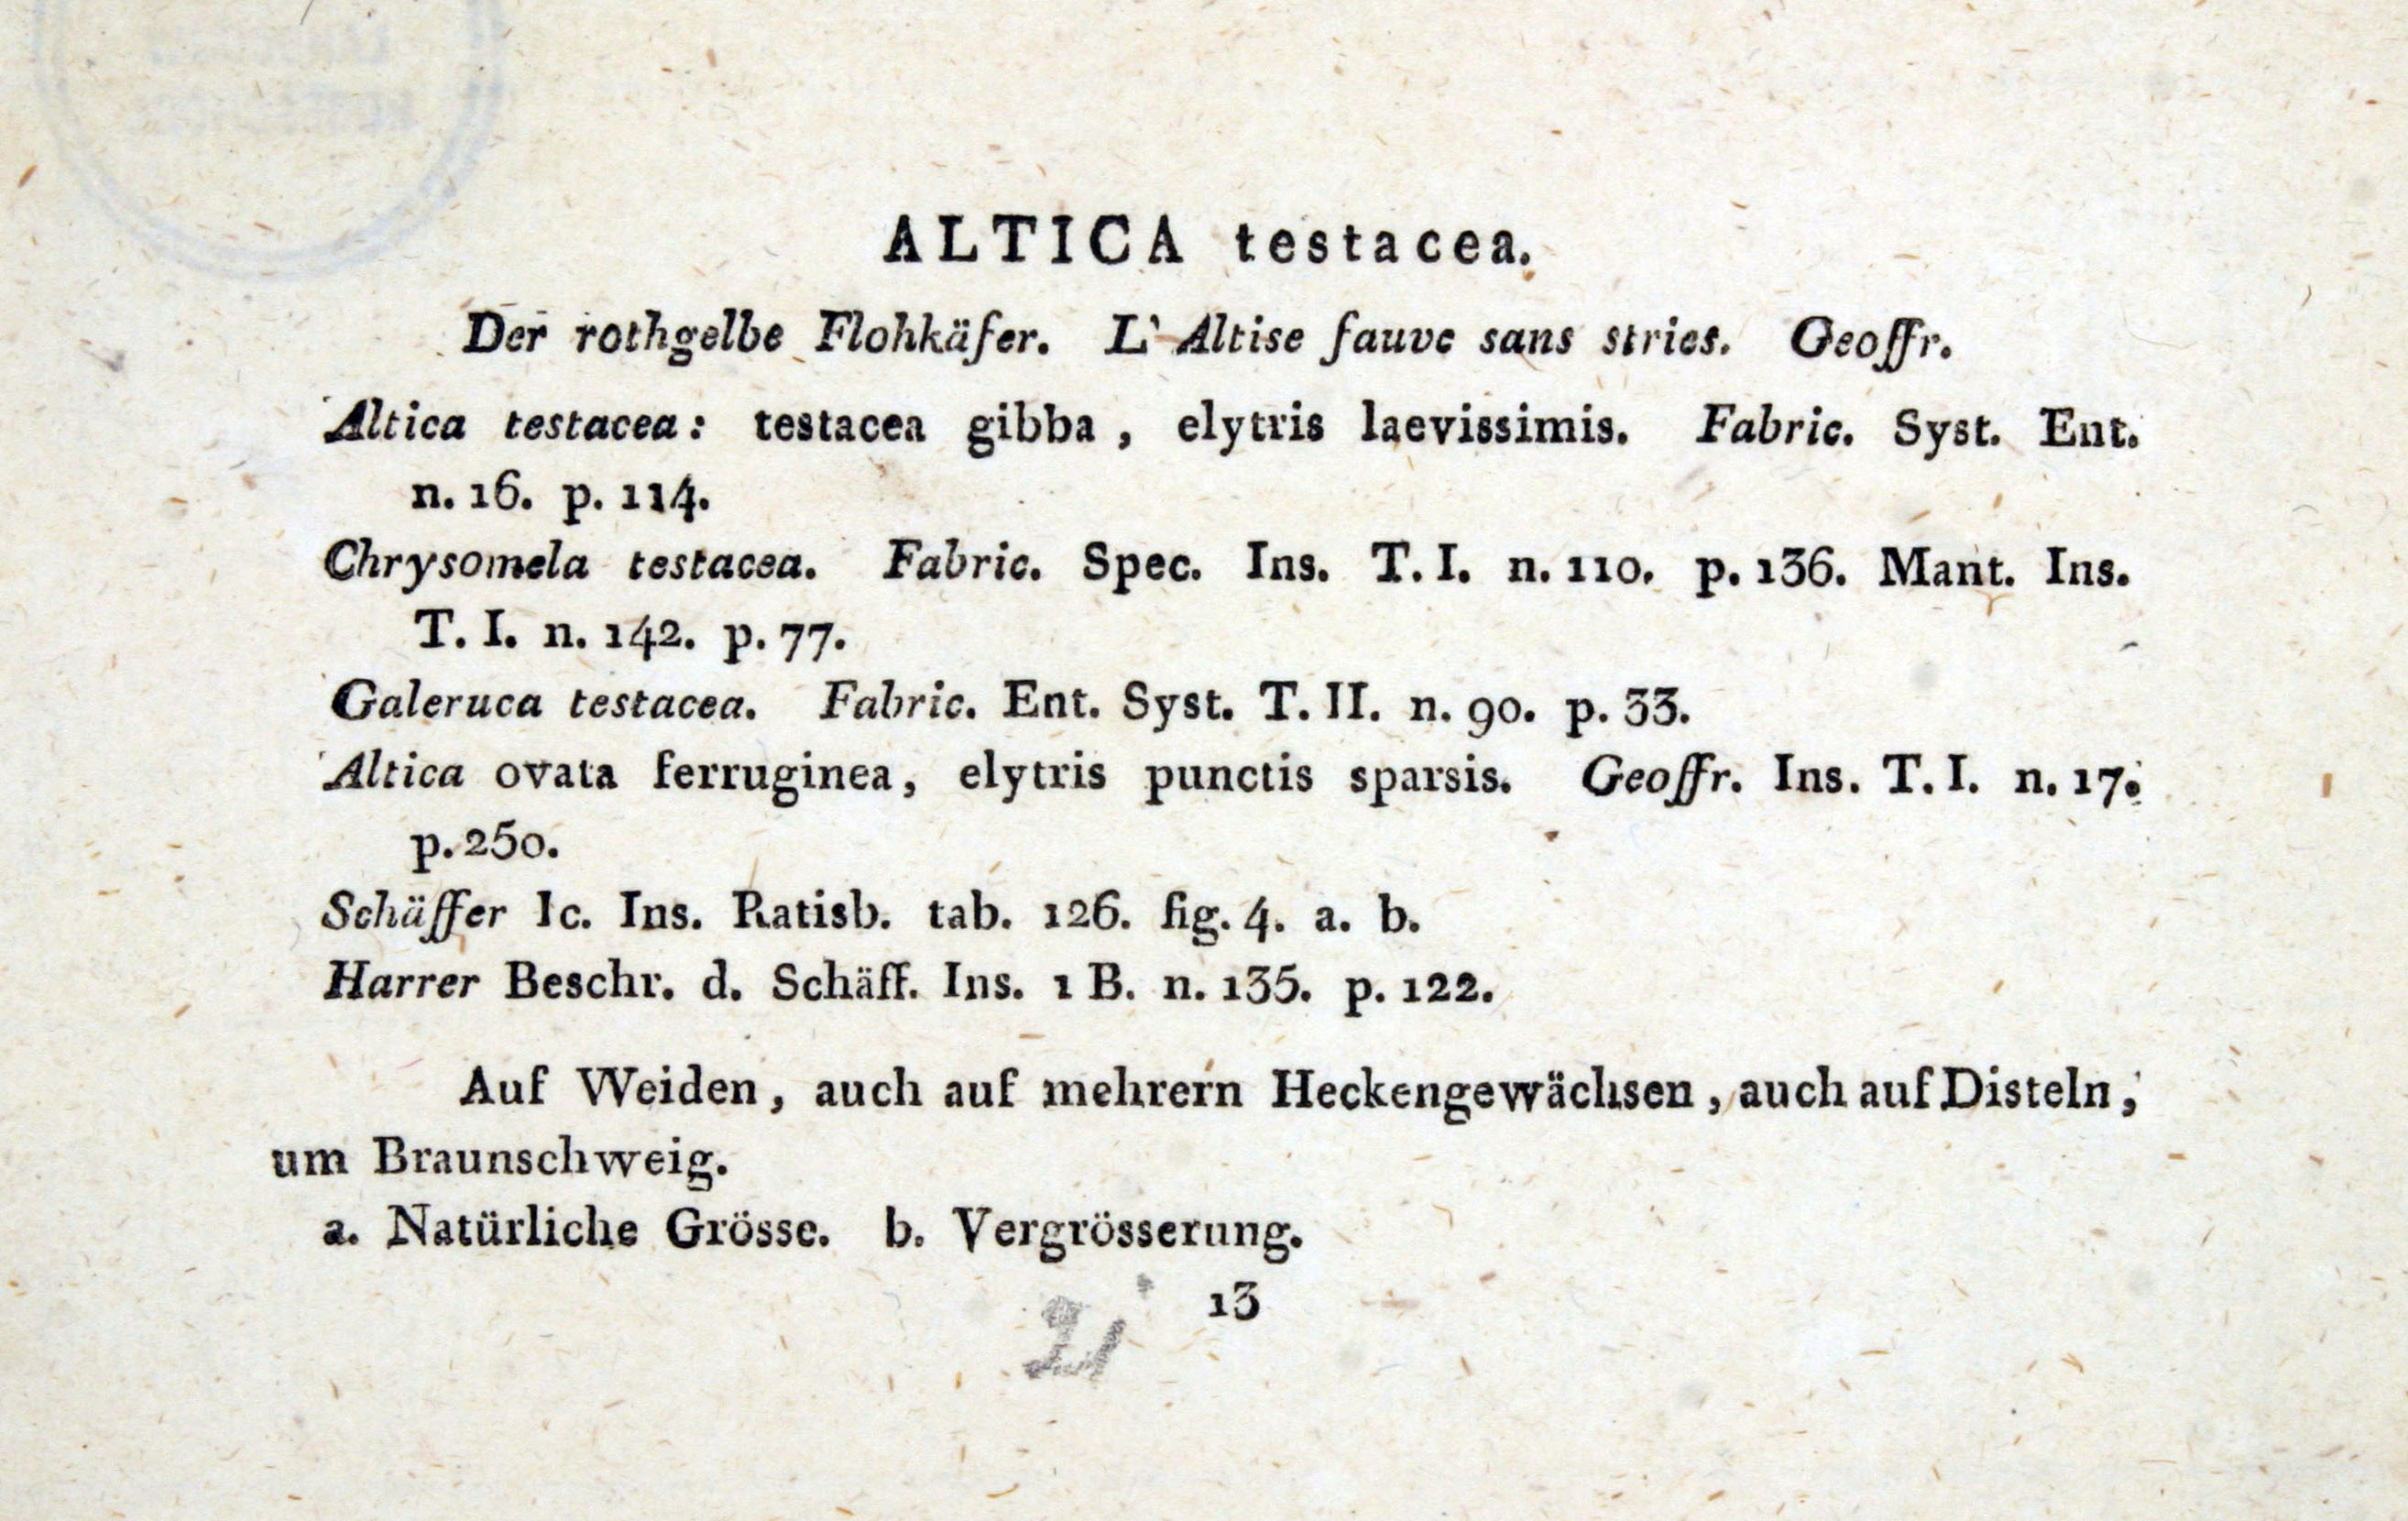 ALTICA testacea.
Der rothgelbe Flohkäfer. L' Altise fauve sans stries. Geoffr.
Altica testacea: testacea gibba, elytris laevissimis. Fabric. Syst. Ent.
n. 16. p. 114.
Chrysomela testacea. Fabric. Spec. Ins. T. I. n. 110. p. 136. Mant. Ins.
T. I. n. 142. p. 77.
Galeruca testacea. Fabric. Ent. Syst. T. II. n. 90. p. 33.
Altica ovata ferruginea, elytris punctis sparsis. Geoffr. Ins. T. I. n. 17.
p. 250.
Schäffer Ic. Ins. Ratisb. tab. 126. fig. 4. a. b.
Harrer Beschr. d. Schäff. Ins. 1 B. n. 135. p. 122.
Auf Weiden, auch auf mehrern Heckengewächsen, auch auf Disteln,
um Braunschweig.
a. Natürliche Grösse. b. Vergrösserung.
13
21